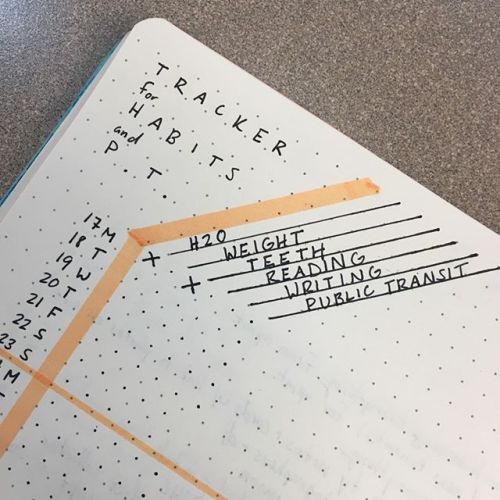 TRACKER
for
HABITS
and
P.T.
+ H2O
WEIGHT
TEETH
+ READING
WRITING
PUBLIC TRANSIT
17 M
18 T
19 W
20 T
21 F
22 S
23 S
M
T